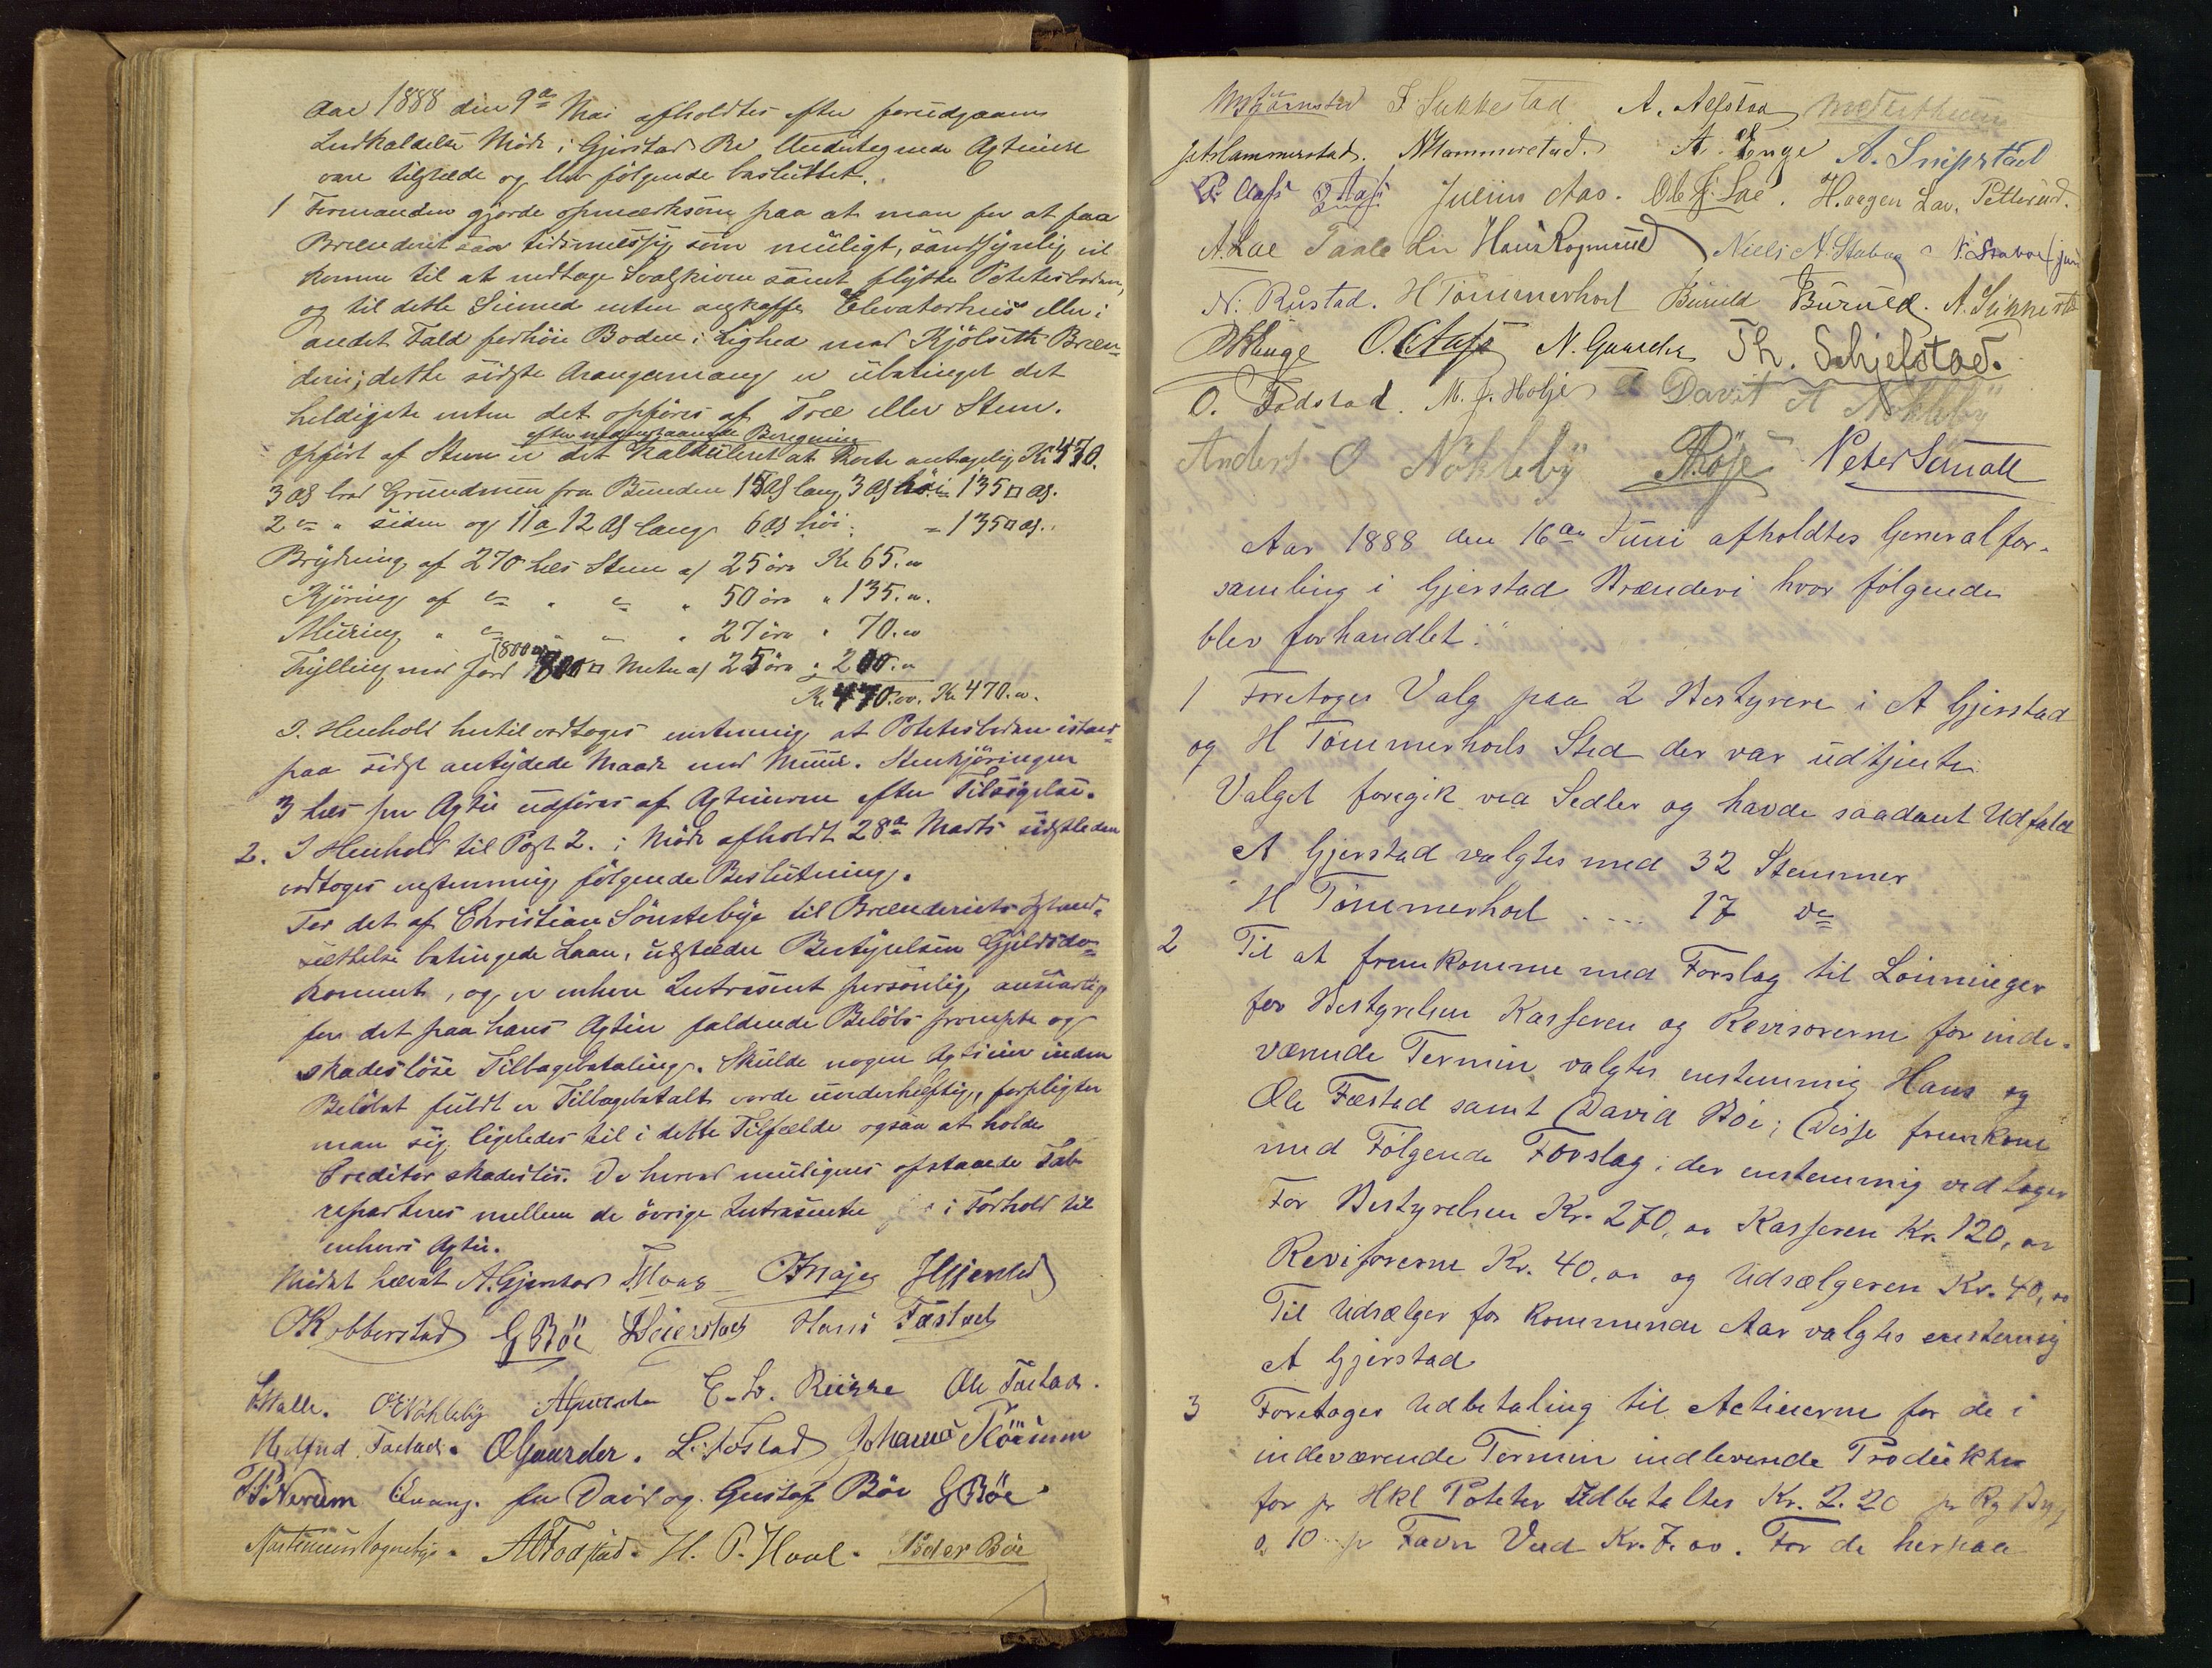 Aar 1888 den 9de Mai afholdtes efter forudgaaende
Indkaldelse Møde i Gjerstad Br. Undertegnede Agtinere
vare tilstæde og blev følgende besluttet.
1 Formanden gjorde opmærksom paa at man for at faa
Brænderiet saa tidsmæssig som muligt, sandsynlig vil
komme til at nedtage Svalskiven samt flytte Potetesboden,
og til dette Øiemed enten anskaffe Elevatorhuis eller i
andet Fald forhøie Boden i Lighed med Kjölseth Bræn-
deri; dette sidste Arangemang er ubetinget det
heldigste enten det opføres af Træ eller Sten.
efter nedenstaaende Beregning
Opført af Sten er det kalkuleret at koste antagelig Kr 470.
3 Al bred Grundmur fra Bunden 15 Al lang 3 Al høi = 135 □ Al.
2 de " siden og 11 a 12 Al lang 6 Al høi = 135 □ Al.
Brydning af 270 læs Sten a/ 25 øre Kr 65. "
Kjøring af do " do " 50 øre " 135. "
Muring " do " " 27 øre " 70. "
(800 )
Fylling med Jord 800 □ Meter a/ 25 øre " 200. "
Kr 470.00. Kr 470. "
I Henhold hertil vedtoges enstemmig at Potetesboden istand-
paa sidst antydede Maade med Muur. Stenkjøringen
3 læs pr Agtie udføres af Agtinerene efter Tilsigelse.
2. I Henhold til Post 2. i Møde afholdt 28de Marts sidstleden
vedtoges enstemmig følgende Beslutning.
For det af Christian Sønsteby til Brænderiets Istand-
sættelse betingede Laan, udsteder Bestyrelsen Gjeldsdo-
kument, og er enhver Intresent personlig ansvarlig
for det paa hans Agtie faldende Beløbs prompte og
skadesløse Tilbagebetaling. Skulde nogen Agtiier inden
Beløbet fuldt er Tilbagebetalt vorde uvederheftig, forpligter
man sig ligeledes til i dette Tilfælde ogsaa at holde
Creditor skadesløs. De herved muligens opstaaede Tab
reparteres mellem de øvrige Intresenter i Forhold til
enhvers Agtie.
Mødet hævet A. Gjerstad
O Kobberstad G Bøe Hans Fæstad
O Nøkleby Ole Fæstad.
O Gaarder. L. Fostad Johannes
Nerum for David og Gustaf Böe G Böe
H. P. Hval. Peder Böe
F Sukkestad A. Alfstad
Hammerstad. Hammerstad. A. Enge A. Snipstad
P. Aass Julius Aas. Ole J. Lae. Haagen Lav. Petterud.
A. Lae Hans Rognerud Niels N. Staboe N. Staboe jun
N. Rustad. H Tömmerhoel Buruld Buruld. A. Sukkestad
O. Aass N. Gaarder Th. Schjelstad.
O. Fodstad. M. J. Holje David A Nökleby
Anders O Nökleby Peter Sematt
Aar 1888 den 16de Juni afholdtes Generalfor-
samling i Gjerstad Brænderi hvor følgende
blev forhandlet:
1 Foretoges Valg paa 2 Bestyrere i A Gjerstad
og H Tömmerhoels Sted der var udtjente
Valget foregik ved Sedler og havde saadant Udfald
A Gjerstad valgtes med 32 Stemmer
H Tömmerhoel .... 17 do
2 Til at fremkomme med Forslag til Lönninger
for Bestyrelsen Kasseren og Revisorerne for inde-
værende Termin valgtes enstemmig Hans og
Ole Fæstad samt David Böe; Disse fremkom
med Følgende Forslag, der enstemmig vedtoges
For Bestyrelsen Kr. 270, oo Kasseren Kr. 120, oo
Revisorerne Kr. 40, oo og Udsælgeren Kr. 40, oo
Til Udsælger for kommende Aar valgtes enstemig
A Gjerstad
3 Foretoges Udbetaling til Actierne for de i
indeværende Termin indleverede Produkter
for pr Hkl Poteter Udbetaltes Kr. 2.20 pr Kg Byg
0, 10 pr Favn Ved Kr. 7. oo. For de herpaa